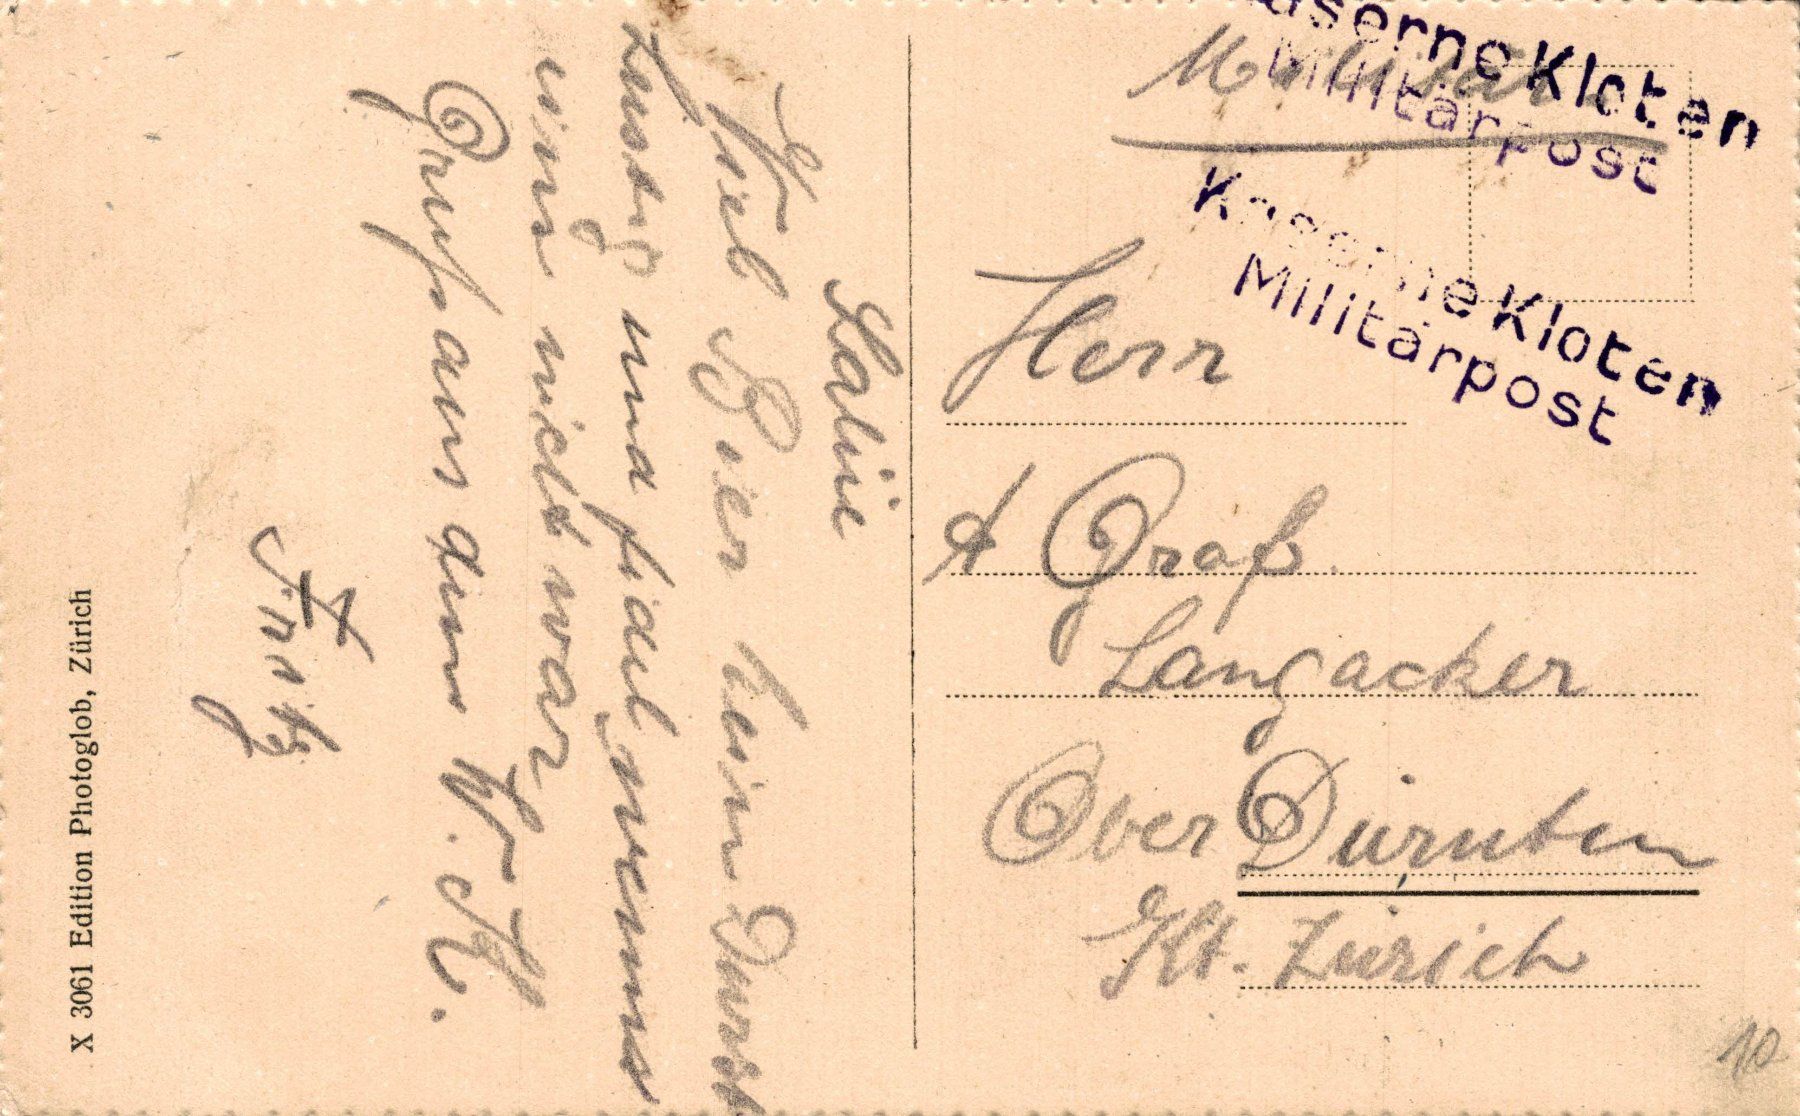 Salü
Viel Bier kein Durst
Lustig und fidel wenns
eim nicht war
Gruss aus dem W.K.
Fritz
X 3061 Edition Photoglob, Zürich
Militär
Kaserne Kloten
Militärpost
Kaserne Kloten
Militärpost
Herr
A Graf.
Langacker
Ober Dürnten
Kt. Zürich
10